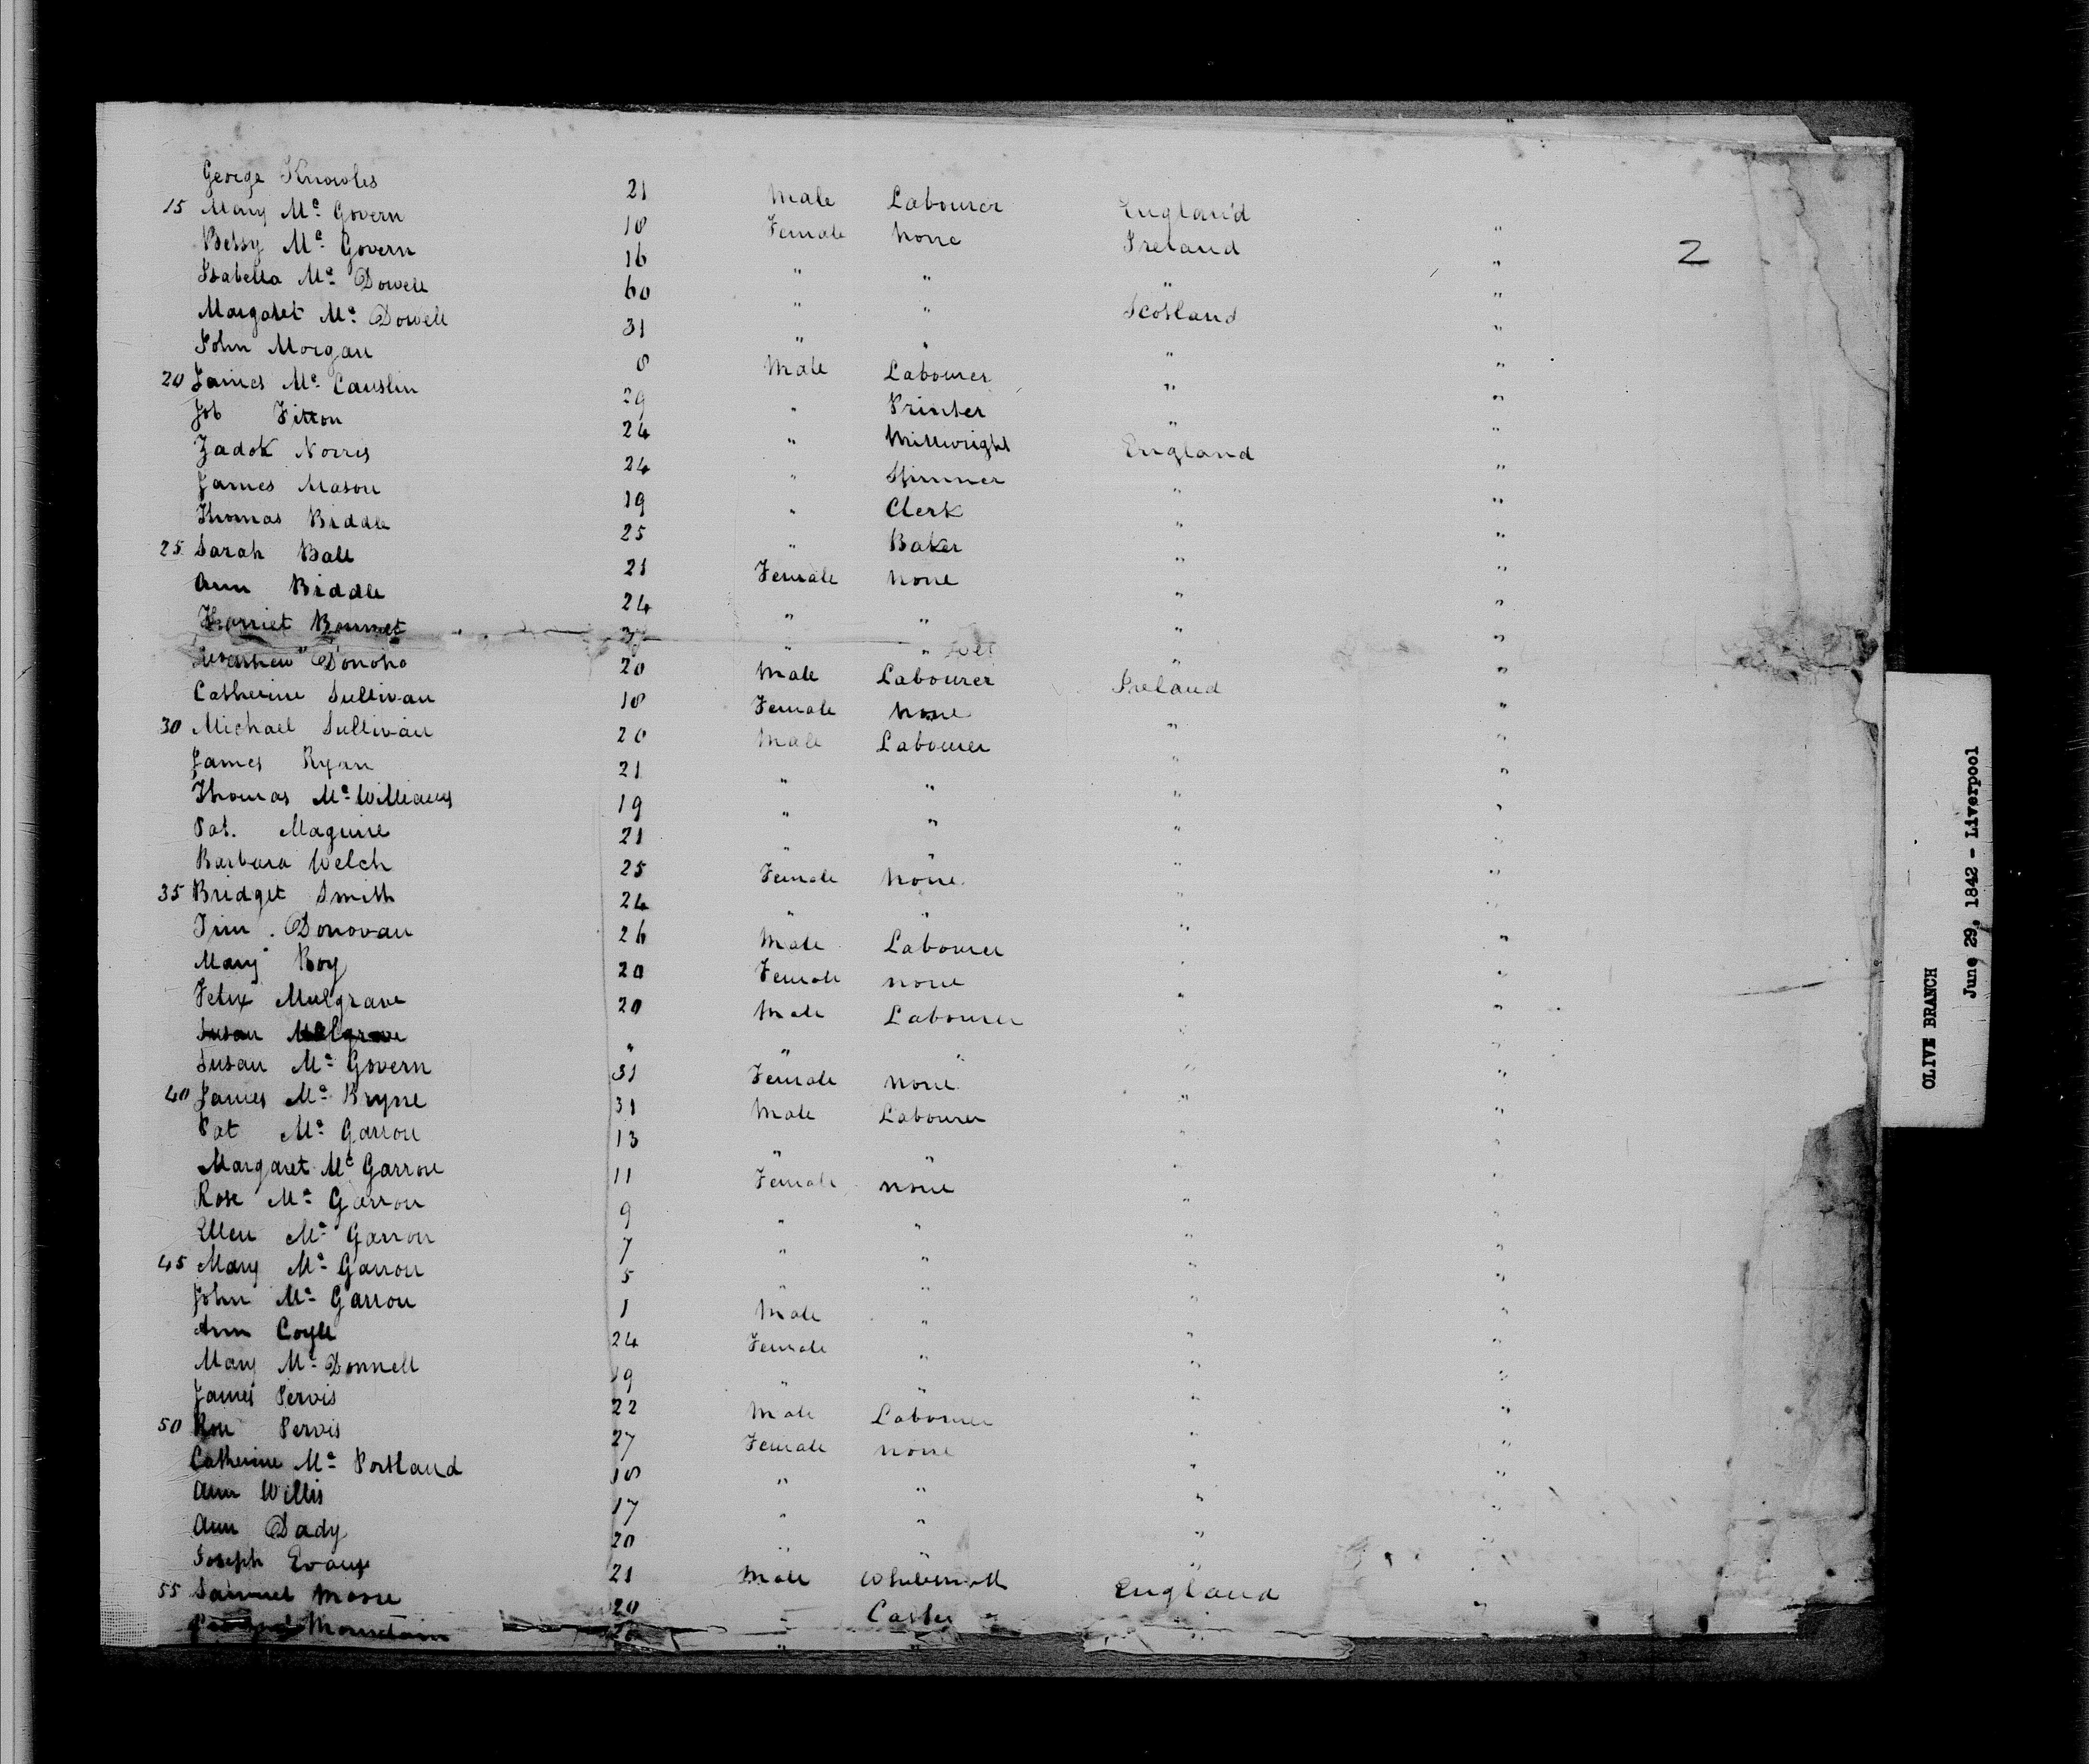 George Knowles 21 Male Labourer England "
15 Mary Mc Govern 18 Female None Ireland "
Betsy Mc Govern 16 " " " "
Isabella Mc Dowell 60 " " Scotland "
Margaret Mc Dowell 31 " " " "
John Morgan 8 Male Labourer " "
20 James Mc Causlin 29 " Printer " "
Job Fitton 24 " Millwright England "
Zadok Norris 24 " Spinner " "
James Mason 19 " Clerk " "
Thomas Biddle 25 " Baker " "
25 Sarah Ball 21 Female none " "
Ann Biddle 24 " " " "
Harriet Bonnet " " " "
Donoho 20 Male Labourer Ireland "
Catherine Sullivan 18 Female None " "
30 Michael Sullivan 20 Male Labourer " "
James Ryan 21 " " " "
Thomas Mc Williams 19 " " " "
Pat. Maguire 21 " " " "
Barbara Welch 25 Female None " "
35 Bridget Smith 24 " " " "
Tim. Donovan 26 Male Labourer " "
Mary Boy 20 Female none " "
Felix Mulgrave 20 Male Labourer " "
Susan Mulgrave " " " " "
Susan Mc Govern 31 Female none " "
40 James Mc Bryne 31 Male Labourer " "
Pat Mc Garron 13 " " " "
Margaret Mc Garron 11 Female none " "
Rose Mc Garron 9 " " " "
Ellen Mc Garron 7 " " " "
45 Mary Mc Garron 5 " " " "
John Mc Garron 1 Male " " "
Ann Coyle 24 Female " " "
Mary Mc Donnell 19 " " " "
James Pervis 22 Male Labourer " "
50 Rose Pervis 27 Female none " "
Catherine Mc Portland 18 " " " "
Ann Willis 17 " " " "
Ann Dady 20 " " " "
Joseph Evans 21 Male Whitesmith England "
55 Samuel Moore 20 " Caster "
Mountain 20 " "
2
OLIVE BRANCH
June 29, 1842 - Liverpool